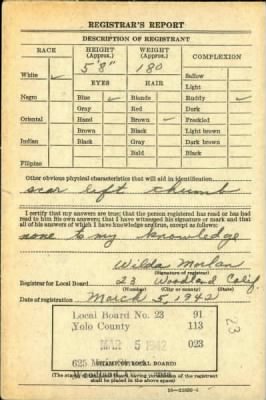 REGISTRAR'S REPORT
DESCRIPTION OF REGISTRANT
RACE HEIGHT (Approx.) WEIGHT (Approx.) COMPLEXION
5'8" 180
White ✓ EYES HAIR Sallow
Light
Negro Blue ✓ Blonde Ruddy ✓
Gray Red Dark
Oriental Hazel Brown ✓ Freckled
Brown Black Light brown
Indian Black Gray Dark brown
Bald Black
Filipino
Other obvious physical characteristics that will aid in identification
scar left thumb
I certify that my answers are true; that the person registered has read or has had
read to him his own answers; that I have witnessed his signature or mark and that
all of his answers of which I have knowledge are true, except as follows:
none to my knowledge
Wilda Morlan
(Signature of registrar)
Registrar for Local Board 23 Woodland Calif.
(Number) (City or county) (State)
Date of registration March 5, 1942
Local Board No. 23 91
Yolo County 113
MAR 5 1942 023
625
(STAMP OF LOCAL BOARD)
(The stamp of the Local Board having jurisdiction of the registrant
shall be placed in the above space)
23